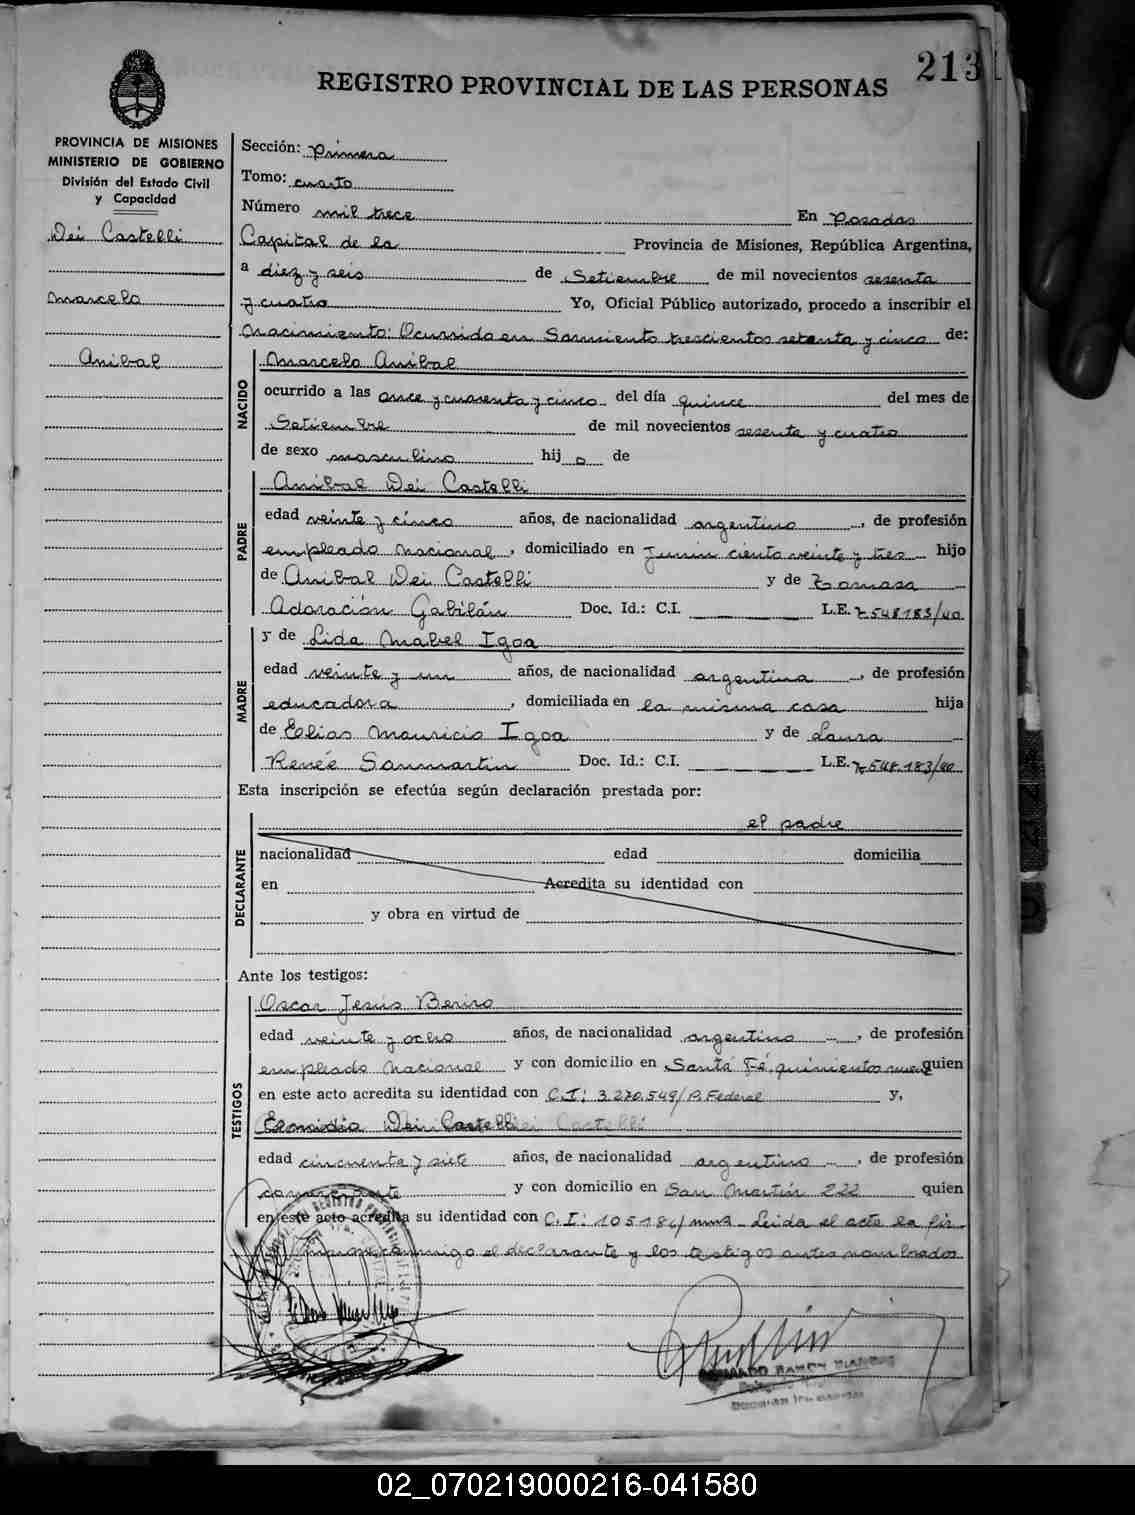 213
REGISTRO PROVINCIAL DE LAS PERSONAS
PROVINCIA DE MISIONES
MINISTERIO DE GOBIERNO
División del Estado Civil
y Capacidad
Dei Castelli
Marcelo
Anibal
Sección: primera
Tomo: cuarto
Número mil trece En Posadas
Capital de la Provincia de Misiones, República Argentina,
a diez y seis de Setiembre de mil novecientos sesenta
y cuatro Yo, Oficial Público autorizado, procedo a inscribir el
Nacimiento: Ocurrido en Sarmiento trescientos setenta y cinco de:
NACIDO
Marcelo Anibal
ocurrido a las once y cuarenta y cinco del día quince del mes de
Setiembre de mil novecientos sesenta y cuatro
de sexo masculino hij o de
Anibal Dei Castelli
PADRE
edad veinte y cinco años, de nacionalidad argentino, de profesión
empleado nacional, domiciliado en Junin ciento veinte y tres hijo
de Anibal Dei Castelli y de Tomasa
Adoración Gabilán Doc. Id.: C.I. L.E. 7.548.183/40
y de Lida Mabel Igoa
MADRE
edad veinte y un años, de nacionalidad argentina, de profesión
educadora, domiciliada en la misma casa hija
de Elias Mauricio Igoa y de Laura
Renée Sanmartin Doc. Id.: C.I. L.E. 7.548.183/40
Esta inscripción se efectúa según declaración prestada por:
el padre
DECLARANTE
nacionalidad edad domicilia
en Acredita su identidad con
y obra en virtud de
Ante los testigos:
TESTIGOS
Oscar Jesús
edad veinte y ocho años, de nacionalidad argentino, de profesión
empleado nacional y con domicilio en Santa Fé quinientos nueve quien
en este acto acredita su identidad con C.I: 3.270.549/P. Federal y,
Dei Castelli
edad cincuenta y siete años, de nacionalidad argentino, de profesión
comerciante y con domicilio en San Martín 222 quien
en este acto acredita su identidad con C.I: 105184/mnes Leida el acta la fir
man conmigo el declarante y los testigos antes nombrados
02_070219000216-041580